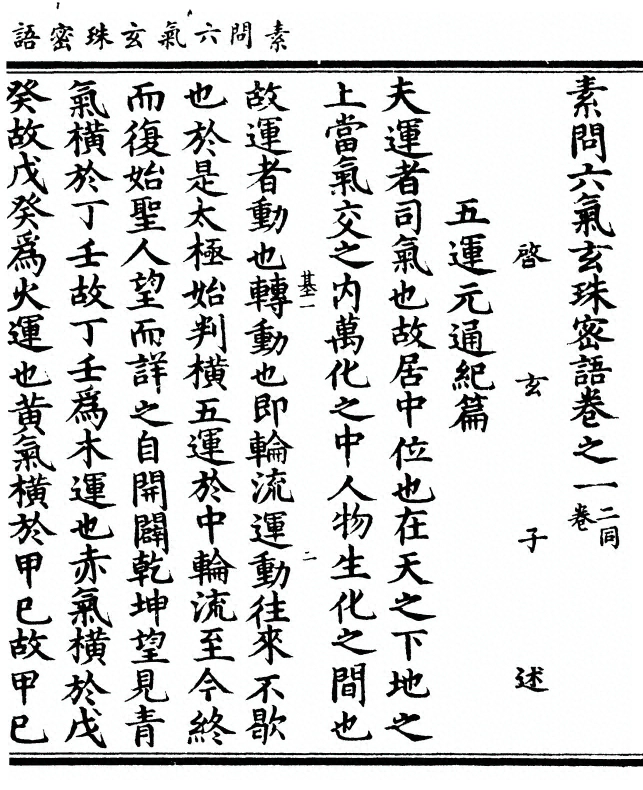 素問六氣玄珠密語
素問六氣玄珠密語卷之一 二同卷
啓玄子述
五運元通紀篇
夫運者司氣也故居中位也在天之下地之
上當氣交之内萬化之中人物生化之間也
基一 二
故運者動也轉動也即輪流運動往來不歇
也於是太極始判橫五運於中輪流至今終
而復始聖人望而詳之自開闢乾坤望見青
氣橫於丁壬故丁壬爲木運也赤氣橫於戊
癸故戊癸爲火運也黄氣橫於甲巳故甲巳